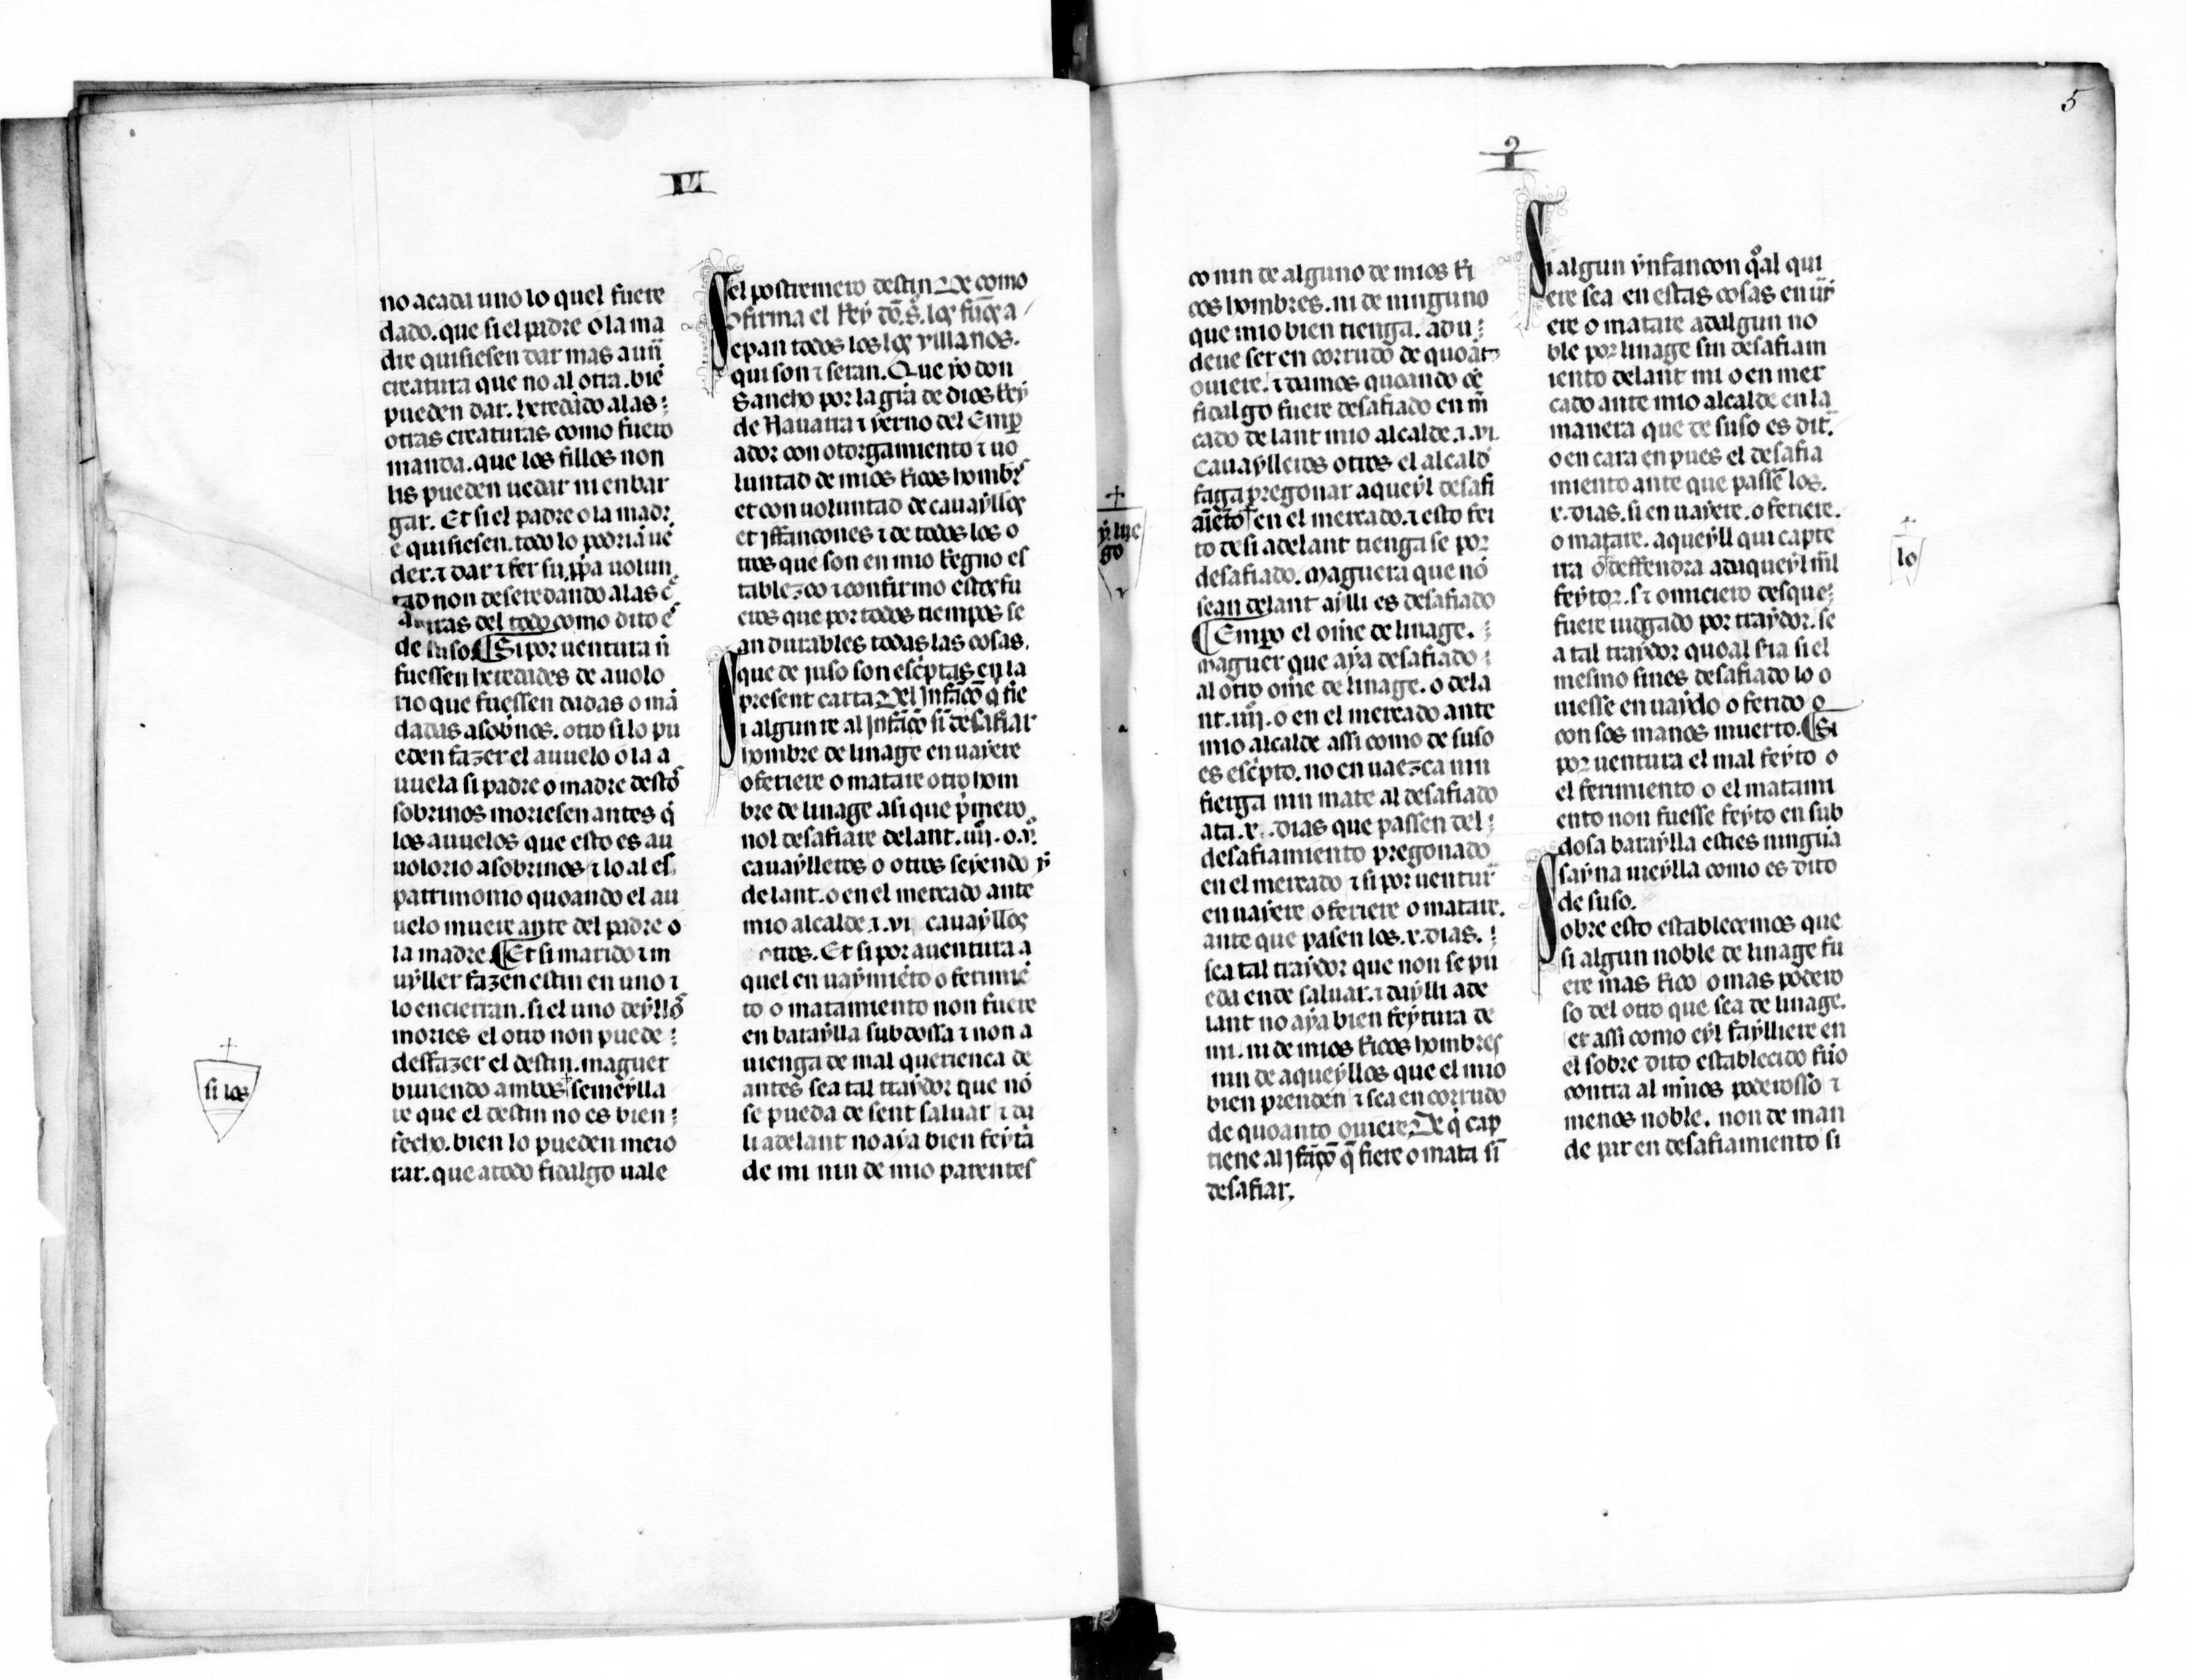 VI
no acada uno lo quel fuere
dado. que si el padre o la ma
dre quisiesen dar mas a un̄
creatura que no al otra. biē
pueden dar. heredādo alas
otras creaturas como fuero
manda. que los fillos non
lis pueden uedar ni enbar
gar. Et si el padre o la madr
e quisiesen. todo lo podriā uē
der. ⁊ dar ⁊ fer su ꝓpa uolun
tad non deseredando alas c̄
a turas del todo como dito es
de suso ¶ Si por uentura ȳ
fuessen heredades de auolo
rio que fuessen dadas o mā
dadas a sobrinos. otro si lo pu
eden fazer el auuelo o la a
uuela si padre o madre destos
sobrinos moriesen antes q̄
los auuelos que esto es au
uolorio a sobrinos ⁊ lo al es
patrimonio quoando el au
uelo muere ante del padre o
la madre ¶ Et si marido ⁊ m
uyller fazen estin en uno ⁊
lo encierran. si el uno deyllos
mories el otro non puede
desfazer el destin. maguer
biuiendo ambos semeylla
re que el destin no es bien
fecho. bien lo pueden meio
rar. que a todo fidalgo uale
si los
el postremero destin De como
ꝯfirma el Rey dō. S. los fuos a
Sepan todos los los villanos.
qui son ⁊ seran. Que yo don
Sancho por la gr̄a de dios Rey
de Nauarra ⁊ yerno del Emp
ador con otorgamiento ⁊ uo
luntad de mios Ricos hombs
et con uoluntad de cauayllos
et iffancones ⁊ de todos los o
tros que son en mio Regno es
tablezco ⁊ confirmo estos fu
eros que por todos tiempos se
an durables todas las cosas.
que de iuso son escriptas en la
present carta Del Infāçō q̄ fie
Si algun re al Infāçō sī desafiar
hombre de linage en uayere
o feriere o matare otro hom
bre de linage asi que pimero
nol desafiare delant. iiij. o. v.
cauaylleros o otros seyendo ȳ
delant. o en el mercado ante
mio alcalde ⁊. vi cauayllos
otros. Et si por auentura a
quel en uaymiēto o ferimiē
to o matamiento non fuere
en bataylla subdossa ⁊ non a
uienga de mal querienca de
antes sea tal traydor que nō
se pueda de sent saluar ⁊ da
li adelant no aya bien feytā
de mi nin de mio parentes
y lue
go
5
co nin de alguno de mios Ri
cos hombres. ni de ninguno
que mio bien tienga. ad u
deue ser en corrudo de quoāto
ouiere. ⁊ damos quoando
fidalgo fuere desafiado en m̄
cado delant mio alcalde. ⁊. vi.
cauaylleros otros el alcald
faga pregonar aqueyl desafi
amēto en el mercado. ⁊ esto fei
to desi adelant tienga se por
desafiado. Maguera que nō
sean delant aylli es desafiado
¶ Empo el ome de linage.
maguer que aya desafiado
al otro ome de linage. o dela
nt. iiij. o en el mercado ante
mio alcalde assi como de suso
es escpto. no en uaezca nin
fierga nin mate al desafiado
ata. x. dias que passen del
desafiamiento pregonado
en el mercado ⁊ si por uentur
en uayere o feriere o matare.
ante que pasen los. x. dias.
sea tal traydor que non se pu
eda ende saluar. ⁊ daylli ade
lant no aya bien feytura de
mi. ni de mios Ricos hombres
nin de aqueyllos que el mio
bien prenden ⁊ sea en corrudo
de quoanto ouiere De q̄ cap
tiene al ifāçō q̄ fiere o mata sī
desafiar.
Si algun ynfancon qoal qui
ere sea en estas cosas en uy
ere o matare ad algun no
ble por linage sin desafiam
iento delant mi o en mer
cado ante mio alcalde en la
manera que de suso es dit
o en cara en pues el desafia
miento ante que passē los.
x. dias. si en uayere. o feriere.
o matare. aqueyll qui capte
rra o deffendra ad aqueyl m̄l
feytor. si omiciero desque
fuere iudgado por traydor. se
a tal traydor quoal sia si el
mesmo sines desafiado lo o
uiesse en uaydo o ferido o
con sos manos muerto. ¶ Si
por uentura el mal feyto o
el ferimiento o el matami
ento non fuesse feyto en sub
dosa bataylla esties ninguā
sayna uieylla como es dito
de suso.
Sobre esto establecemos que
si algun noble de linage fu
ere mas Rico o mas podero
so del otro que sea de linage.
et assi como eyl faylliere en
el sobre dito establecido fuo
contra al mīnos poderosso ⁊
menos noble. non de man
de par en desafiamiento si
lo